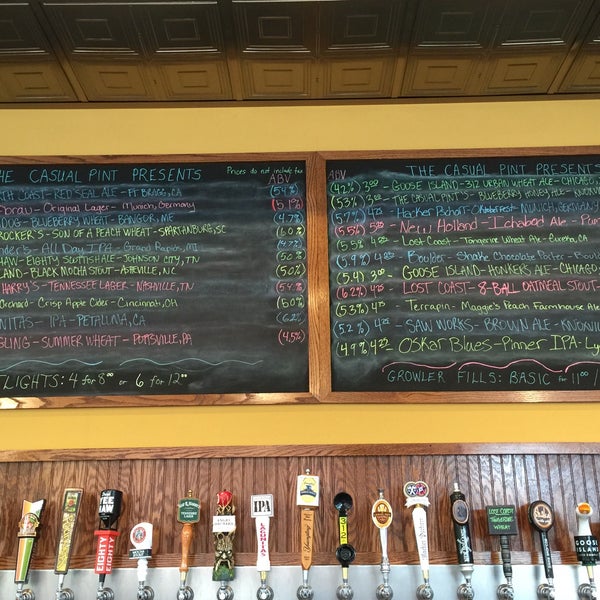 THE CASUAL PINT PRESENTS Prices do not include tax
ABV
COAST-RED SEAL ALE - FT BRAGG, CA (5.4%)
Munich, Germany (5.1%)
DOG-BLUEBERRY WHEAT - BANGOR, ME (4.7%)
ROCKER'S - SON OF A PEACH WHEAT - SPARTANBURG, SC (6.0%)
All Day IPA - Grand Rapids, MI (4.7%)
HAW-EIGHTY SCOTTISH ALE - JOHNSON CITY, TN (5.0%)
LAND-BLACK MOCHA STOUT - ASHEVILLE, NC (5.0%)
HARRY'S - TENNESSEE LAGER - NASHVILLE, TN
Orchard - Crisp Apple Cider - Cincinnati, OH (5.0%)
NITAS - IPA - PETALUMA, CA (6.2%)
LING - SUMMER WHEAT - POTTSVILLE, PA (4.5%)
LIGHTS: 4 for 8.00 or 6 for 12.00
ABV THE CASUAL PINT PRESENTS
(4.2%) GOOSE ISLAND - 312 URBAN WHEAT ALE - CHICAGO,
(5.3%) THE CASUAL PINT'S - BLUEBERRY
(5.7%) 4.25 Hacker Pschorr - Oktoberfest - MUNICH, GERMANY
(5.5%) New Holland - Ichabod Ale -
(5.5%) 4.25 Lost Coast - Tangerine Wheat Ale - Eureka, CA
4.25 Boulder - Shake Chocolate Porter -
(5.4) GOOSE ISLAND - HONKERS ALE - CHICAGO
(6.2%) 4.25 LOST COAST - 8-BALL OATMEAL STOUT -
(5.3%) 4.25 Terrapin - Maggie's Peach Farmhouse Ale
(5.2%) 4.25 SAW WORKS - BROWN ALE - KNOXVI
(4.9%) 4.25 OSKAR BLUES - PINNER IPA - Ly
GROWLER FILLS: BASIC for 11.00 /
YEE HAW
EIGHTY
EIGHTY
IPA
LAGUNITAS
312
LOST COAST
TANGERINE WHEAT
GOOSE ISLAND